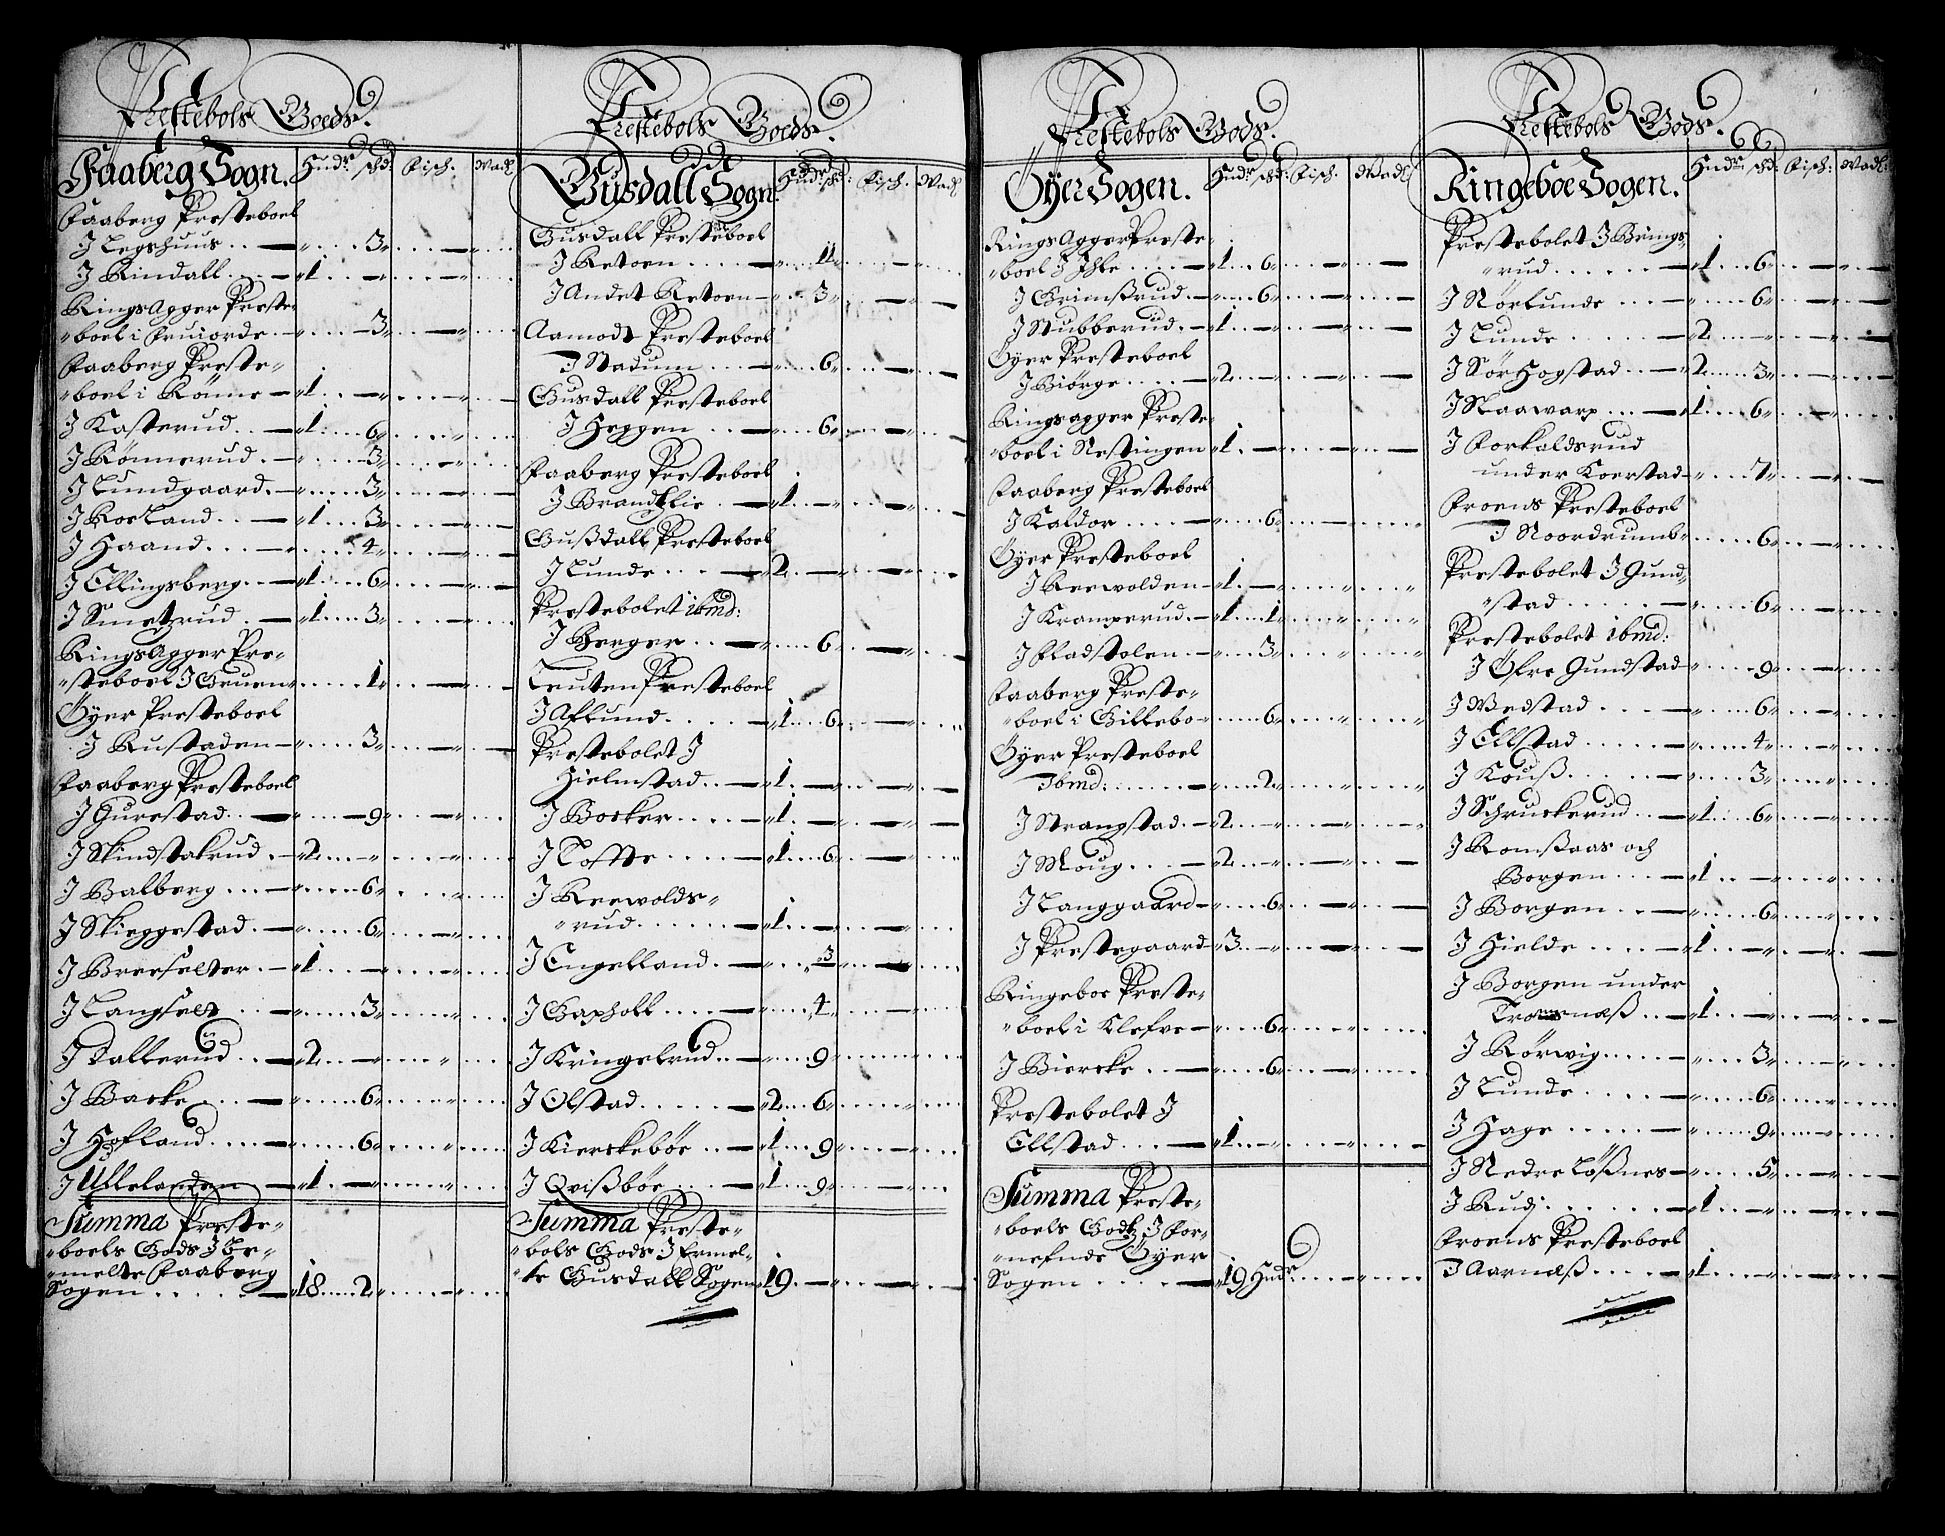 Prestebols Goeds.
Faaberg Sogn. Hudr schd: Fisch. Wadl
Faaberg Presteboel
J Legshuus .. — „....3„....—„....
J Rindall .... — „1...—....—„....
RingsAgger Preste„
„boel i Fruiorde .— „.....3„...—„....
Faaberg Preste„
„boel i Rönne — „1...—„....„..—
J Kasterud ... — „1....6„.......
J Rönnerud .— „.....3„...—....
J Lundgaard.— „.....3„...—„...—
J Roeland .. — „1...3„...—„...—
J Haand .... — „.....4„...—„...—
J Ellingsberg .. — „1....6„...—„....
J Smetzrud .. — „1....3„...—....
RingsAgger Pre„
„steboel J Gruen „.....1„...—„...—
Öyer Presteboel
J Rustaden — „.....3„...—„...—
Faaberg Presteboel
J Gurestad .. — „.....9„...—„....
J Skindstakrud .— „2...—„....„....
J Balberg .... — „.....6„....„....
J Skieggestad .— „.....6„...—„....
J Breeselter .— „1...—„....„....
J Langselt ... — „.....3„....„....
J Jallerud .. — „2...—„....„....
J Backe .... — „.....6„...—„....
J Hofland .... — „.....6„....„....
J Ullelanden — „1...—„...—„....
Summa Preste„
„boels Gods J Be„
„melte Faaberg
Sogen ...... — „18....2„...—„....
Prestebols Goeds.
Gusdall Sogn. Hudr schd: Fisch. Wadl
Gusdall Presteboel
J Retoen ..... — „....11„....—„....
J Andet Retoen — „....3„....—„..—
Aamodt Presteboel
J Stadum .... — „....6„....—„..—
Gusdall Presteboel
J Heggen .. — „....6„...—„..—
Faaberg Presteboel
J Brandtlie .. — „1...—„...—„..—
Gußdall Presteboel
J Lunde .... — „2...—„...—„....
Prestebolet ibmd:
J Berger ... — „....6„...—„..—
Teuten Presteboel
J Aflund ..... — „1....6„...—„....
Prestebolet J
Hielmstad .. — „1...—„...—„..—
J Bocker .... — „1...—„...—„..—
J Tofte ..... — „1....6„...—„....
J Reewolds„
„rud ....... — „1...—„...—„....
J Engelland .— „....3„...—„....
J Gaxholl .... — „....4„....„....
J Kringelrud .. — „....9„....„....
J Olstad ...... — „2....6„....„....
J Kierckeböe .. — „1....9„....„....
J Qvißböe .... — „1....9„...—„....
Summa Preste„
„bols Gods J Ermel„
„te Gusdall Sogen „19...—„....„..—
Prestebols Gods.
Öyer Sogen. Hudr schd: Fisch. Wadl
RingsAgger Preste„
„boel J Ihle .... — „1....6„...—„..—
J Grimßrud .— „....6„...—„..—
J Stubberud .— „1...—„...—„..—
Öyer Presteboel
J Biörge .... — „2...—„...—„..—
Ringsagger Preste„
„boel i Nestingen „1...—„...—„..—
Faaberg Presteboel
J Kaldor .... — „....6„...—„....
Öyer Presteboel
J Reewolden — „1...—„....„....
J Kramperud .— „1....1„....„....
J Fladstolen .. — „....3„....„....
Faaberg Preste„
„boel i Gillebo „....6„....„....
Öyer Presteboel
Ibmd: ...... — „....2„....„....
J Strangstad .— „2...—„...—„....
J Moug ... — „2...—„...—„..—
J Langgaard — „....6„...—„..—
J Prestegaard „3...—„...—„..—
Ringeboe Preste„
„boel i Klefve — „....6„....—„....
J Biercke .. — „....6„...—„....
Prestebolet J
Ellstad .... — „1...—„....„..—
Summa Preste„
„boels Godtz J For„
„nefnde Öyer
Sogen ..... — „19 Hudr....—„....
Prestebols Gods.
Ringeboe Sogen. Hudr schd: Fisch: Wadl:
Prestebolet J Brings„
„rud ...... — „1....6„...—„..—
J Nörlunde ... — „....6„...—„....
J Lunde ...... — „2...—„...—„..—
J Sör Hogstad .. — „2....3„...—„....
J Staawarp ... — „1....6„...—„....
J Forkaldsrud
under Koerstad „....7„...—„..—
Froens Presteboel
J Noordrumb „....6„...—„....
Prestebolet J Gund„
„stad ...... — „....6„...—„....
Prestebolet ibmd:
J Öfre Gundstad „....9„...—„....
J Wedstad .... — „....6„...—„....
J Ellstad ...... — „....4„...—„....
J Kouß ...... — „....3„....„....
J Schruckerud .. — „1....6„...—„....
J Romßaas och
Borgen .... — „1...—„....„....
J Borgen .. — „....6„....„....
J Hielde .... — „1...—„...—„..—
J Borgen under
Tronæß ... — „1...—„...—„..—
J Rörwig ..... — „....3„...—„....
J Lunde ..... — „....6„....„....
J Hage ...... — „....9„...—„....
J Nedre Lößnes — „....5„...—„....
J Rud: ...... — „1...—„...—„..—
Froens Presteboel
J Aarnæß .... — „1...—„...—„..—